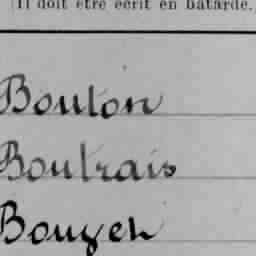 Il doit être écrit en bâtarde.
Bouton
Boutrais
Bouyeh